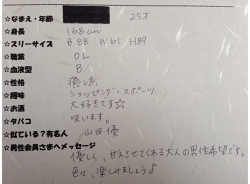 ★なまえ・年齢 25才
★身長 168cm
★スリーサイズ B 88 W 61 H89
★職業 OL
★血液型 B
★性格 癒し系
★趣味 ショッピング・スポーツ
★お酒 大好きです☆
★タバコ 吸います。
★似ている?有名人 山田優
★男性会員さまへメッセージ
優しく、甘えさせてくれる大人の男性希望です。
色々、楽しみましょう♪